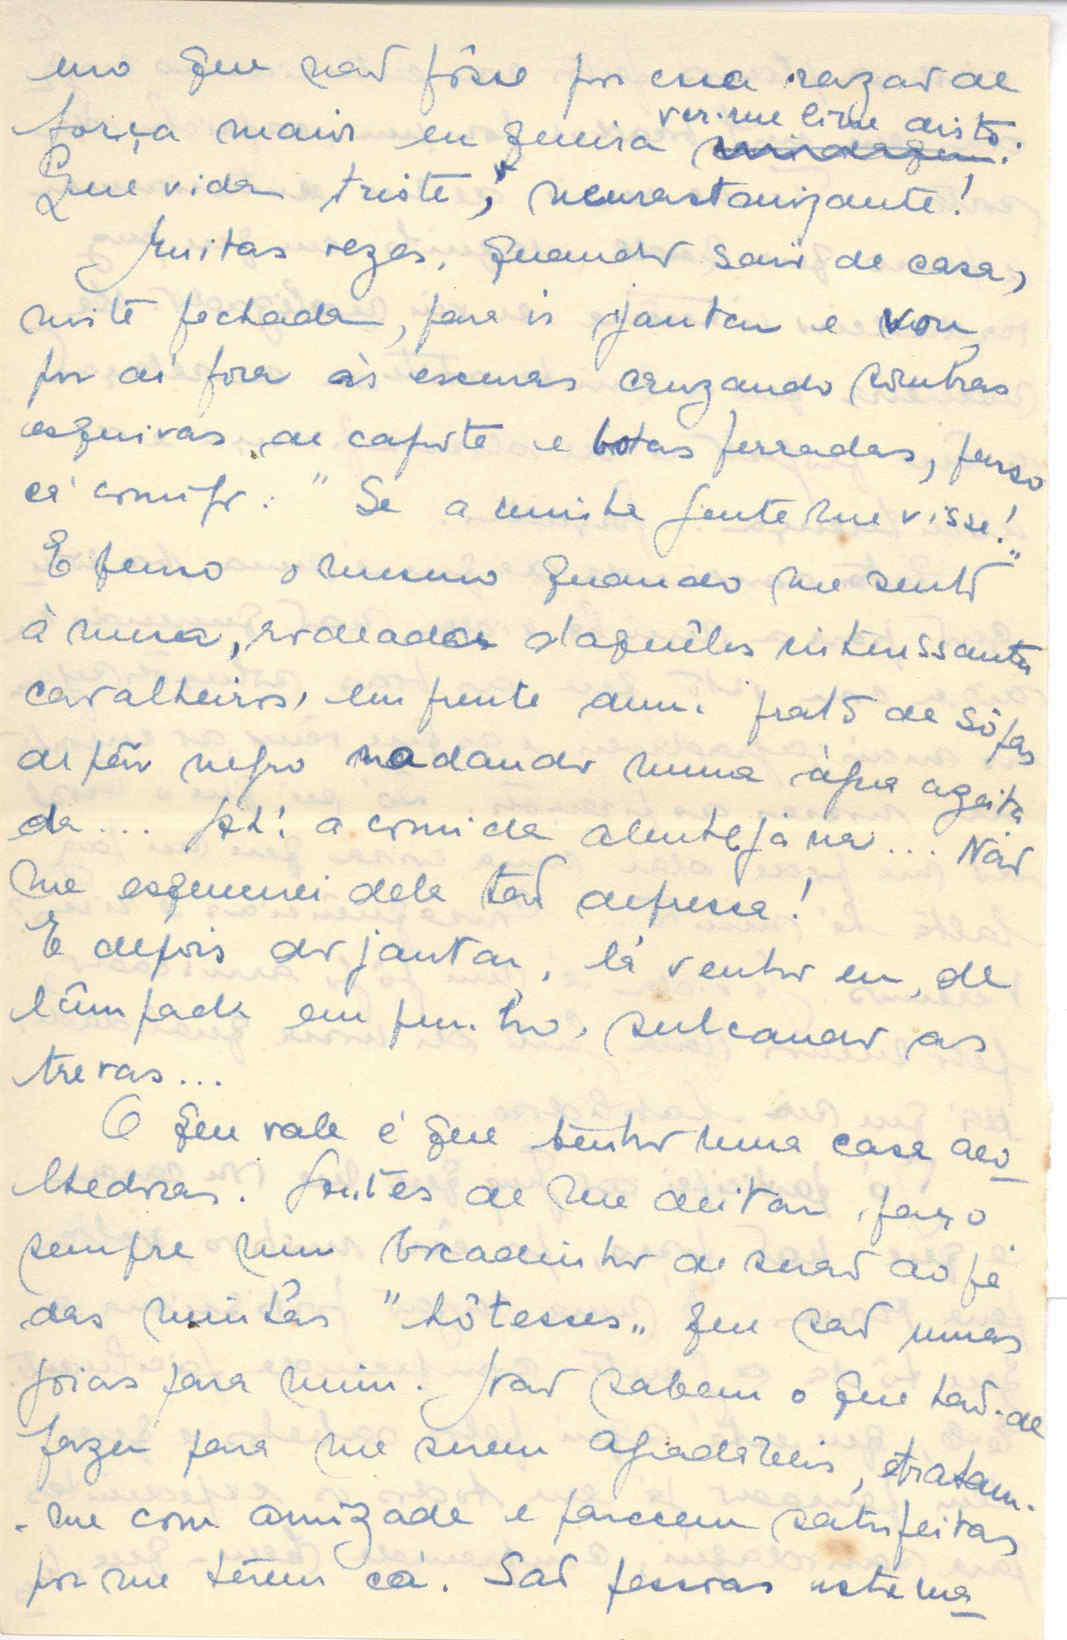 mo que não fôsse por essa razão de
força maior eu queria ver-me livre disto.
Que vida triste, neurastenizante!
Muitas vezes, quando saio de casa,
noite fechada, para ir jantar e vou,
por aí fora às escuras cruzando sombras
esquivas de capote e botas ferradas, penso
cá comigo: "Se a minha gente me visse!"
E penso o mesmo quando me sento
à mesa, rodeada daquêles interessantes
cavalheiros, em frente dum prato de sôpas
de pão negro nadando numa água azeita
da... Ah! a comida alentejana... Não
me esquecerei dela tão depressa!
E depois do jantar, lá venho eu, de
lâmpada em punho, sulcando as
trevas...
O que vale é que tenho uma casa aco-
lhedora. Antes de me deitar, faço
sempre um bocadinho de serão ao pé
das minhas "hôtesses" que são umas
joias para mim. Não sabem o que hão-de
fazer para me serem agradáveis, tratam-
-me com amizade e parecem satisfeitas
por me terem cá. São pessoas estima-